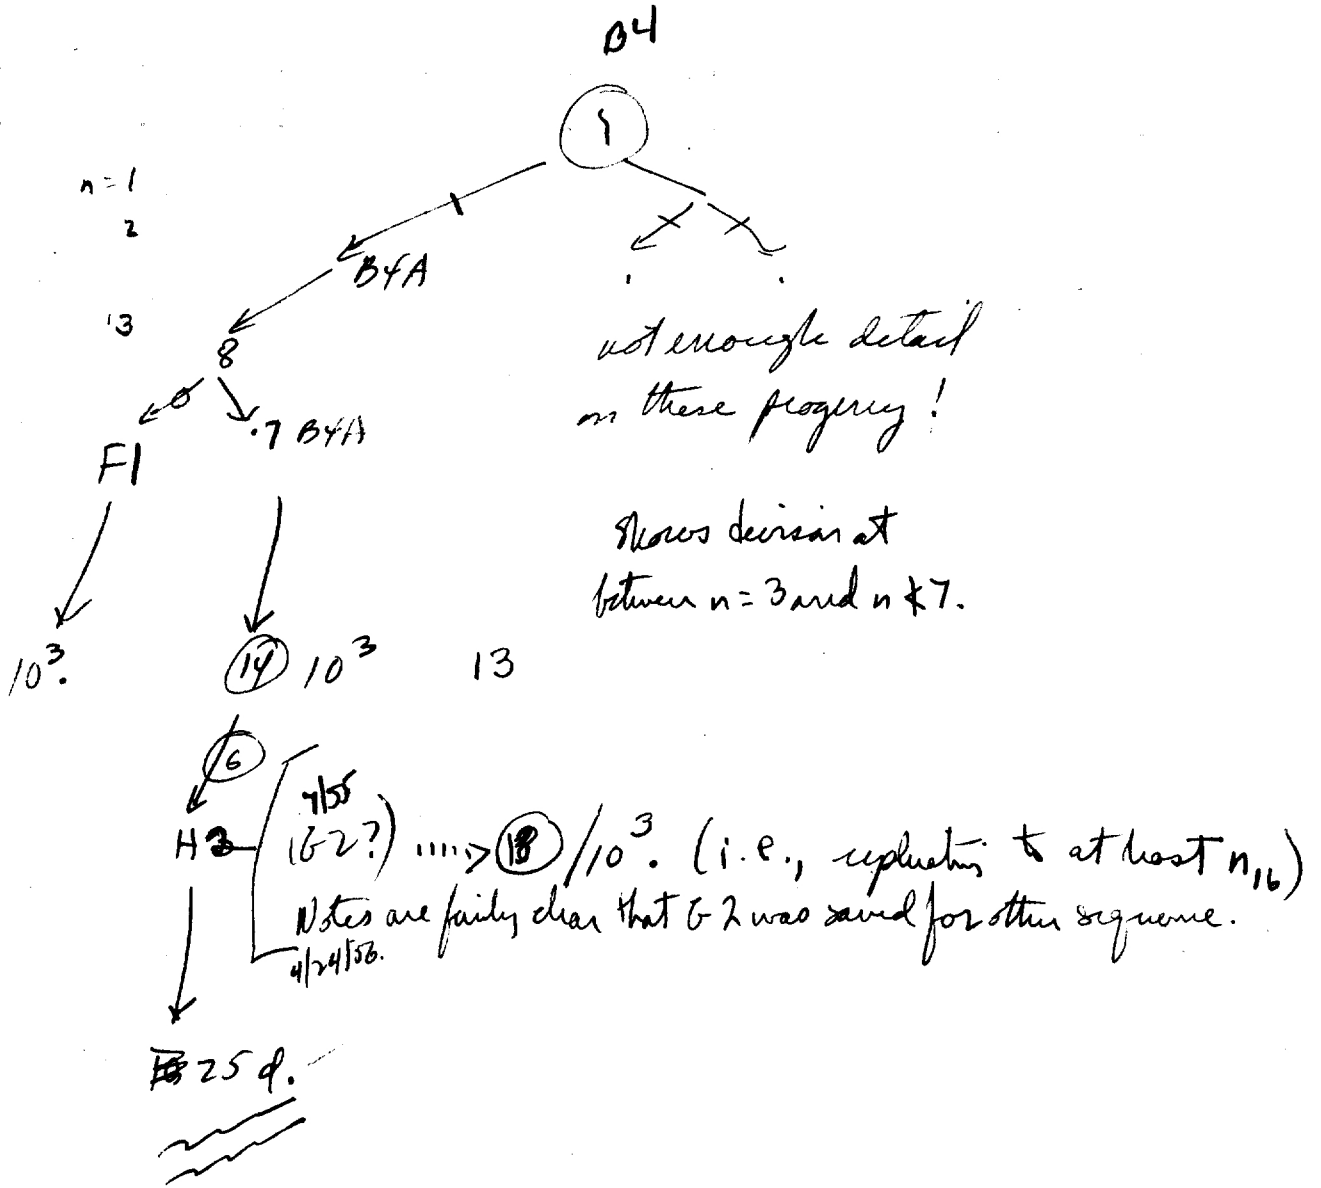 B4
1
n = 1
2
B4A
3
8
not enough detail
on these progeny!
.7 B4A
F1
shows division at
between n = 3 and n 7.
10³.
14 10³ 13
6
H3
(G2?) ....> /10³. (i.e., replicating to at least n₁₆)
Notes are fairly clear that G2 was saved for other sequence.
4/24/56.
25 d.